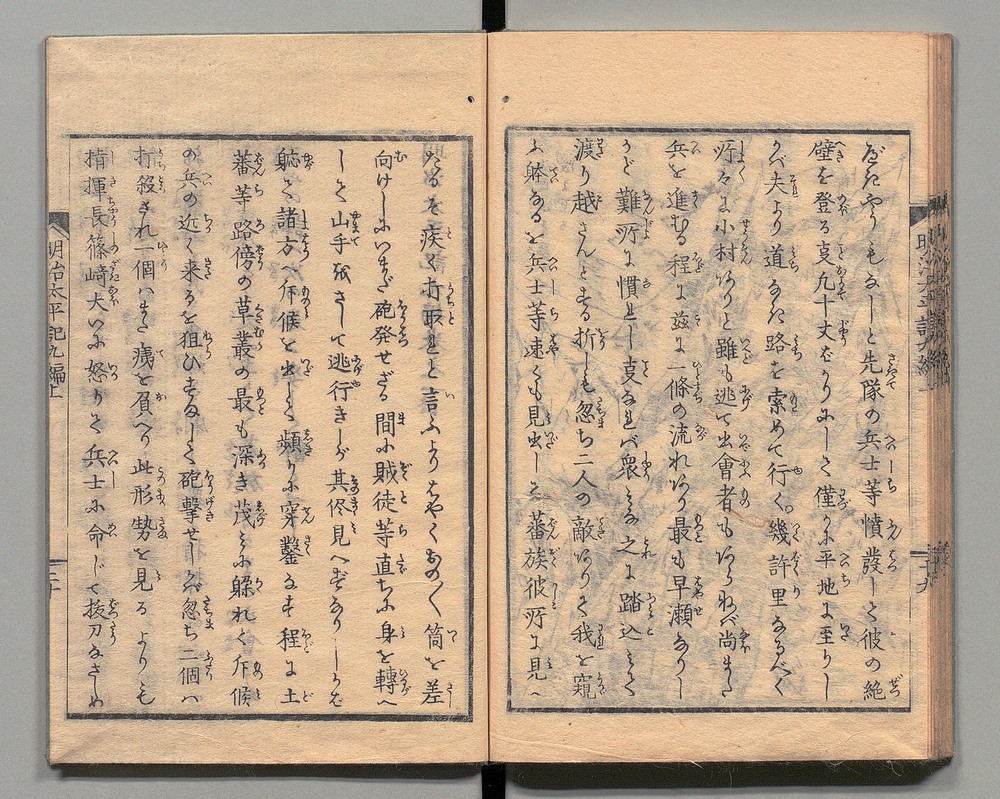 やうもなしと先隊の兵士等憤發して彼の絶
壁を登る事九十丈ばかりにして僅に平地に至りし
かべ夫より道なき路を索めて行く。幾許里なるべく
所々に小村ありと雖も逃て出會者もあらねバ尚また
兵を進むる程に茲に一條の流れあり最も早瀬なりし
かど難所に慣れし事なれバ衆みな之に踏込みて
渡り越さんとする折しも忽ち二人の敵ありて我を窺
ふ躰なるを兵士等速くも見出しそ蕃族彼所に見へ
たるを疾く打取れと言ふよりはやくおの〱筒を差
向けしにいまだ砲発せざる間に賊徒等直ちに身を轉へ
して山手をさして逃行きしが其侭見へずなりしかバ
諸方へ斥候を出して頻りに穿鑿なす程に土
蕃等路傍の草叢の最も深き茂みに躱れて斥候
の兵の近く来るを狙ひすまして砲撃せしかバ忽ち二個ハ
打殺され一個ハまた痍を負へり此形勢を見るよりも
指揮長篠崎大いに怒りて兵士に命じて抜刀なさしめ
明治太平記九編上